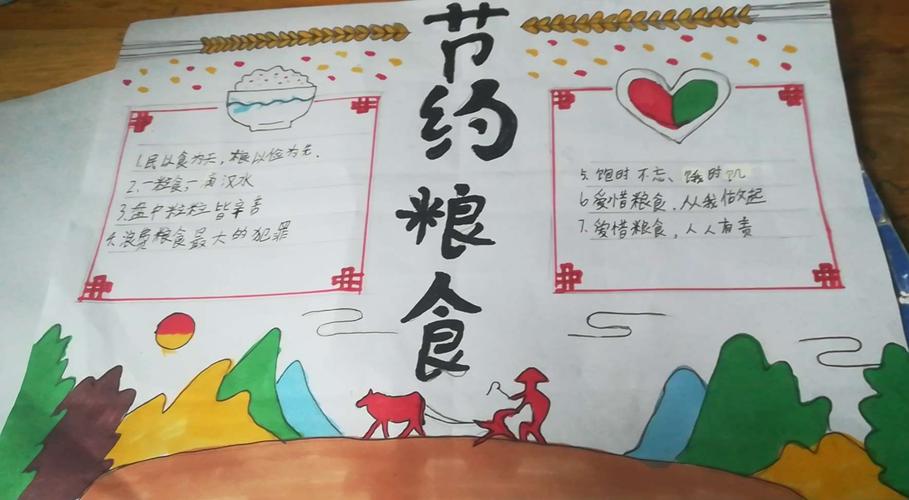 节约粮食
1.民以食为天,粮以俭为先.
2.一粒食,一滴汉水
3.盘中粒粒皆辛苦
4.浪费粮食最大的犯罪
5.饱时不忘、饿时饥
6爱惜粮食,从我做起
7.爱惜粮食,人人有责